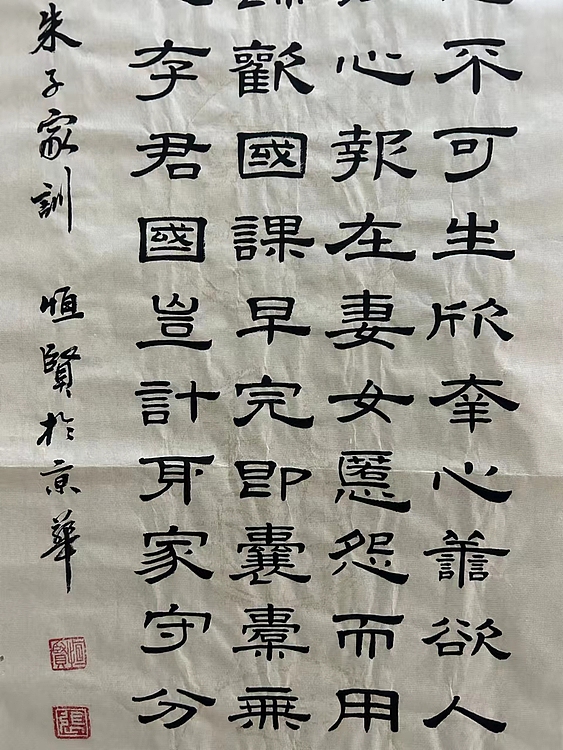 不可生欣幸心譱欲人
心報在妻女慝怨而用
歡國課早完即囊橐無
存君國豈計身家守分
朱子家訓 恒賢於京華
恒賢